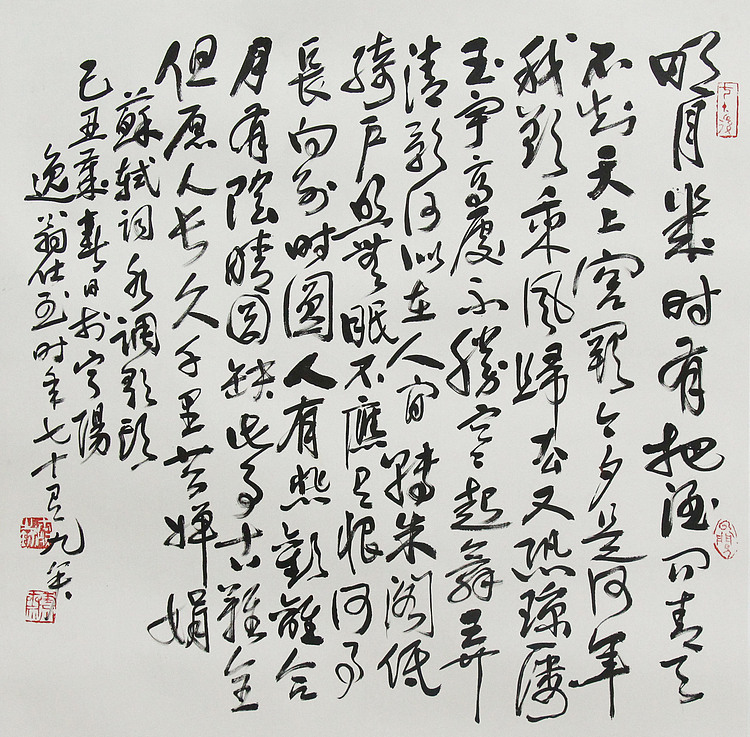 明月幾时有把酒问青天
不知天上宫阙今夕是何年
我欲乘风歸去又恐琼楼
玉宇高處不勝寒起舞弄
清影何似在人间轉朱阁低
绮户照無眠不應有恨何事
長向别时圆人有悲歡離合
月有陰晴圆缺此事古難全
但愿人长久千里共婵娟
蘇軾词水调歌頭
己丑春日於宁陽
逸翁仕时年七十有九矣